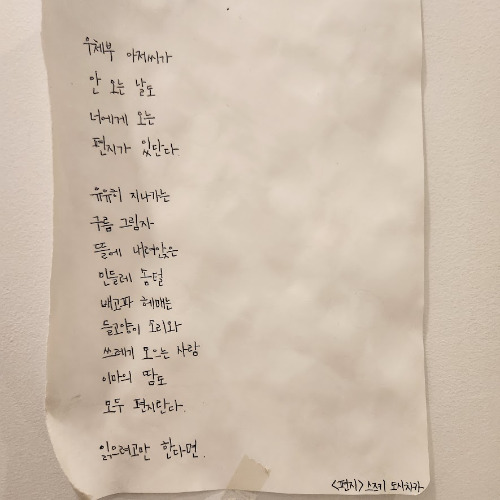 우체부 아저씨가
안 오는 날도
너에게 오는
편지가 있단다.
유유히 지나가는
구름 그림자
뜰에 내려앉은
민들레 솜털
배고파 헤매는
들고양이 소리와
쓰레기 모으는 사람
이마의 땀도
모두 편지란다.
읽으려고만 한다면.
<편지> 스즈키 도시치카